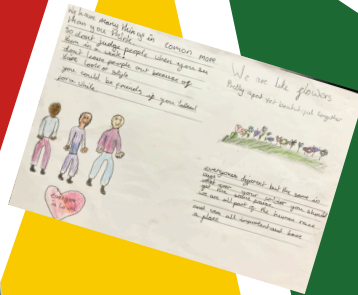 We have many things in comon more
than you think
so dont judge people when you see
them in a
dont leave people out because of
there looks or style
you could be friends if you
for a while
everyone
is
We are like flowers
Pretty apart but beautiful together
everyones diffrent but the same in
ways
what ever your colour you should
get the same
we are all part of the human race
and were all important and have
a place